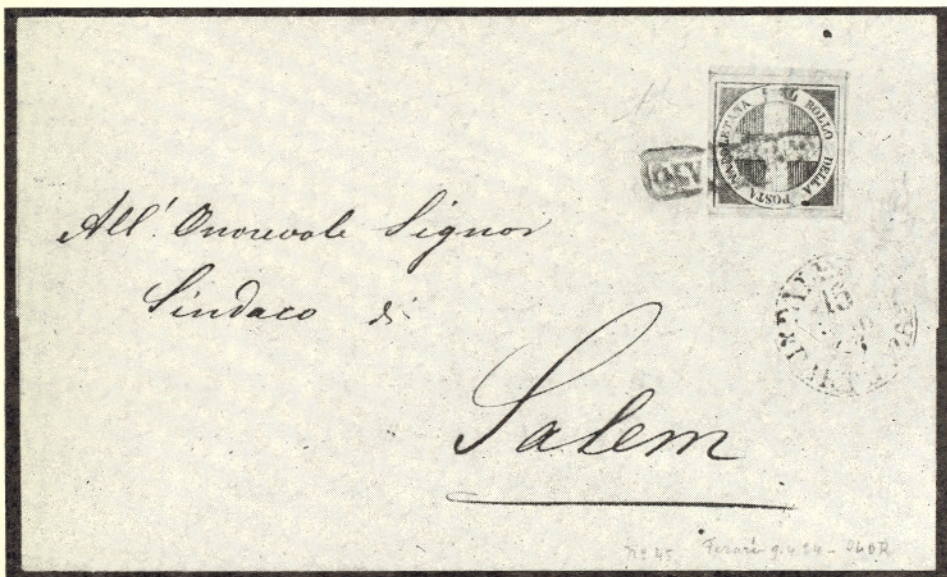 BOLLO DELLA POSTA NAPOLETANA
All'. Onorevole Signor
Sindaco di
Salem
No 45 Ferrari 9.4.24 -